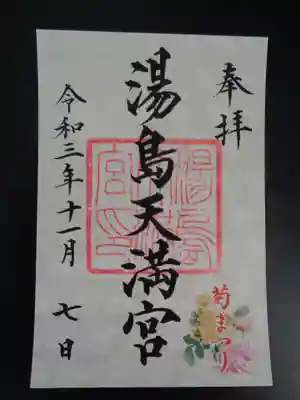 奉拝
湯島天満宮
菊まつり
令和三年十一月七日